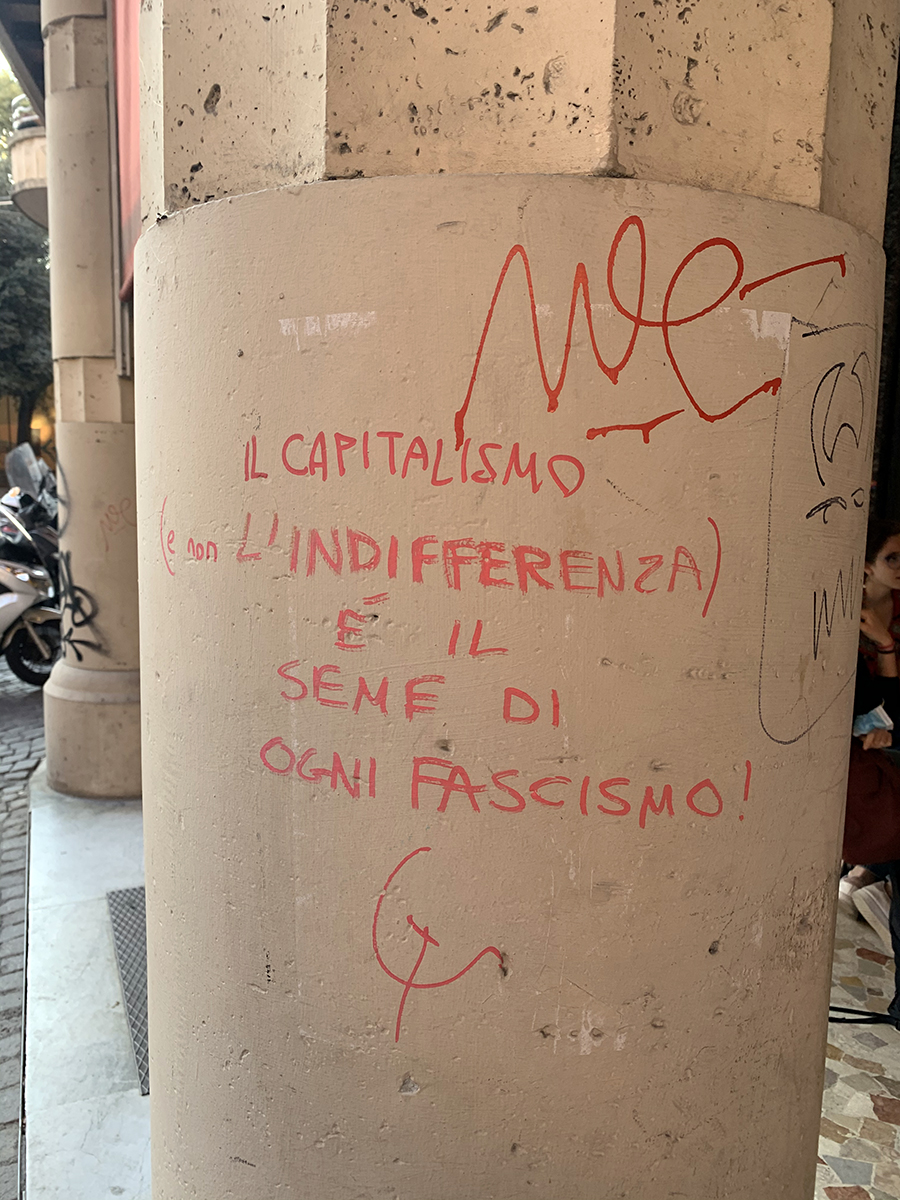 IL CAPITALISMO
(e non L'INDIFFERENZA)
É IL
SEME DI
OGNI FASCISMO!